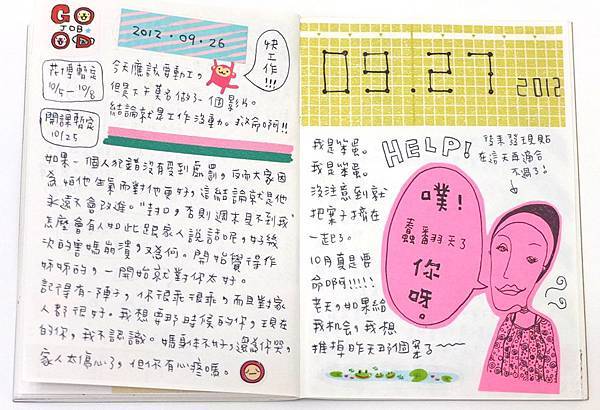 GOOD
JOB
2012.09.26
快工作!!!
花博暫定
10/5-10/8
開課暫定
10/25
今天應該要動工,
但是下午莫名做了一個影片。
結論就是工作沒動。救命啊!!
如果一個人犯錯沒有受到處罰,反而大家因
為怕他生氣而對他更好,這結論就是他
永遠不會改進。"封口,否則週末見不到我"
怎麼會有人如此跟家人說話呢,好幾
次的害媽崩潰,又為何。開始覺得作
姊姊的,一開始就對你太好。
記得有一陣子,你很乖很乖,而且對家
人都很好。我想要那時候的你,現在
的你,我不認識。媽身体不好,還為你哭,
家人太傷心了,但你有心疼嗎。
09.27
2012
HELP!
後來發現貼
在這天再適合
不過了!
我是笨蛋。
我是笨蛋。
沒注意到就
把案子擠在
一起了。
10月真是要
命啊!!!!!
老天,如果給
我机会,我想
推掉昨天的個案了~~~
噗!
蠢翻天了
你
呀。